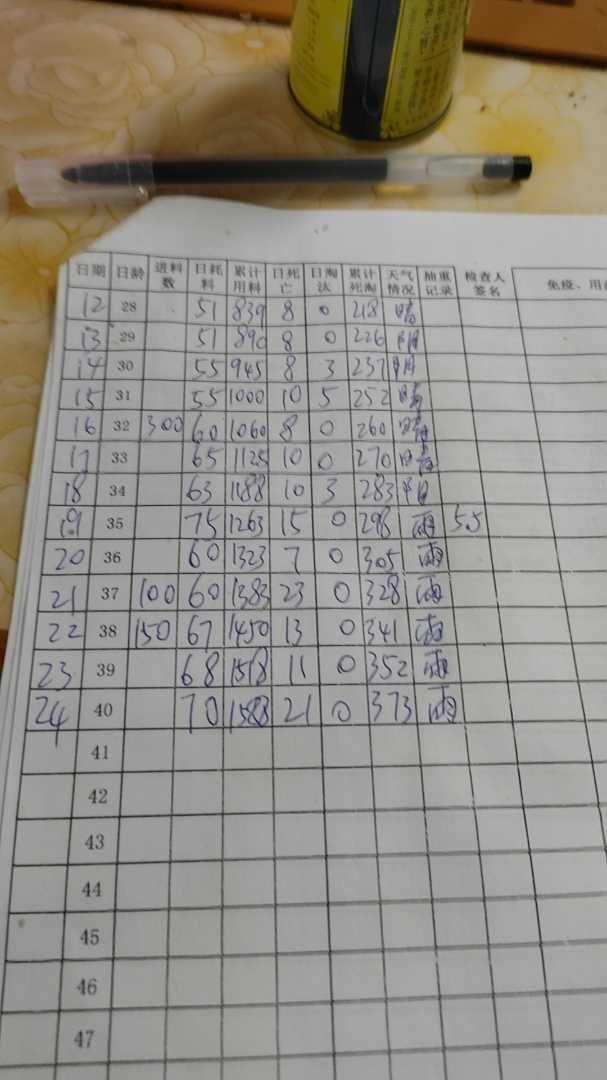 日期 日龄 进料数 日耗料 累计用料 日死亡 日淘汰 累计死淘 天气情况 抽重记录 检查人签名 免疫、用
12 28 51 839 8 0 218 晴
13 29 51 890 8 0 226 晴
14 30 55 945 8 3 237 阴
15 31 55 1000 10 5 252 晴
16 32 300 60 1060 8 0 260 晴
17 33 65 1125 10 0 270 晴
18 34 63 1188 10 3 283 阴
19 35 75 1263 15 0 298 雨 55
20 36 60 1323 7 0 305 雨
21 37 100 60 1383 23 0 328 雨
22 38 150 67 1450 13 0 341 雨
23 39 68 1518 11 0 352 雨
24 40 70 1588 21 0 373 雨
41
42
43
44
45
46
47